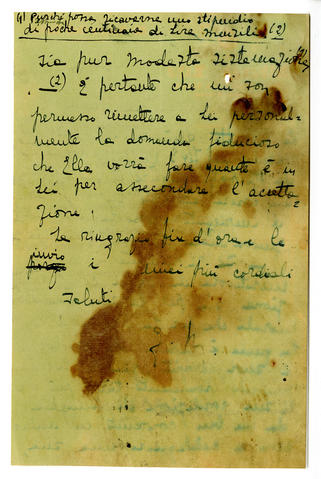 (1) Purché possa ricavarne uno stipendio
di poche centinaia di lire mensili (2)
sia pur modesta sistemazione
(2) È pertanto che mi son
permesso rimettere a Lei personal-
mente la domanda fiducioso
che Ella vorrà fare quanto è in
Lei per assecondare l'accetta-
zione.
La ringrazio fin d'ora e Le
invio
i miei più cordiali
saluti